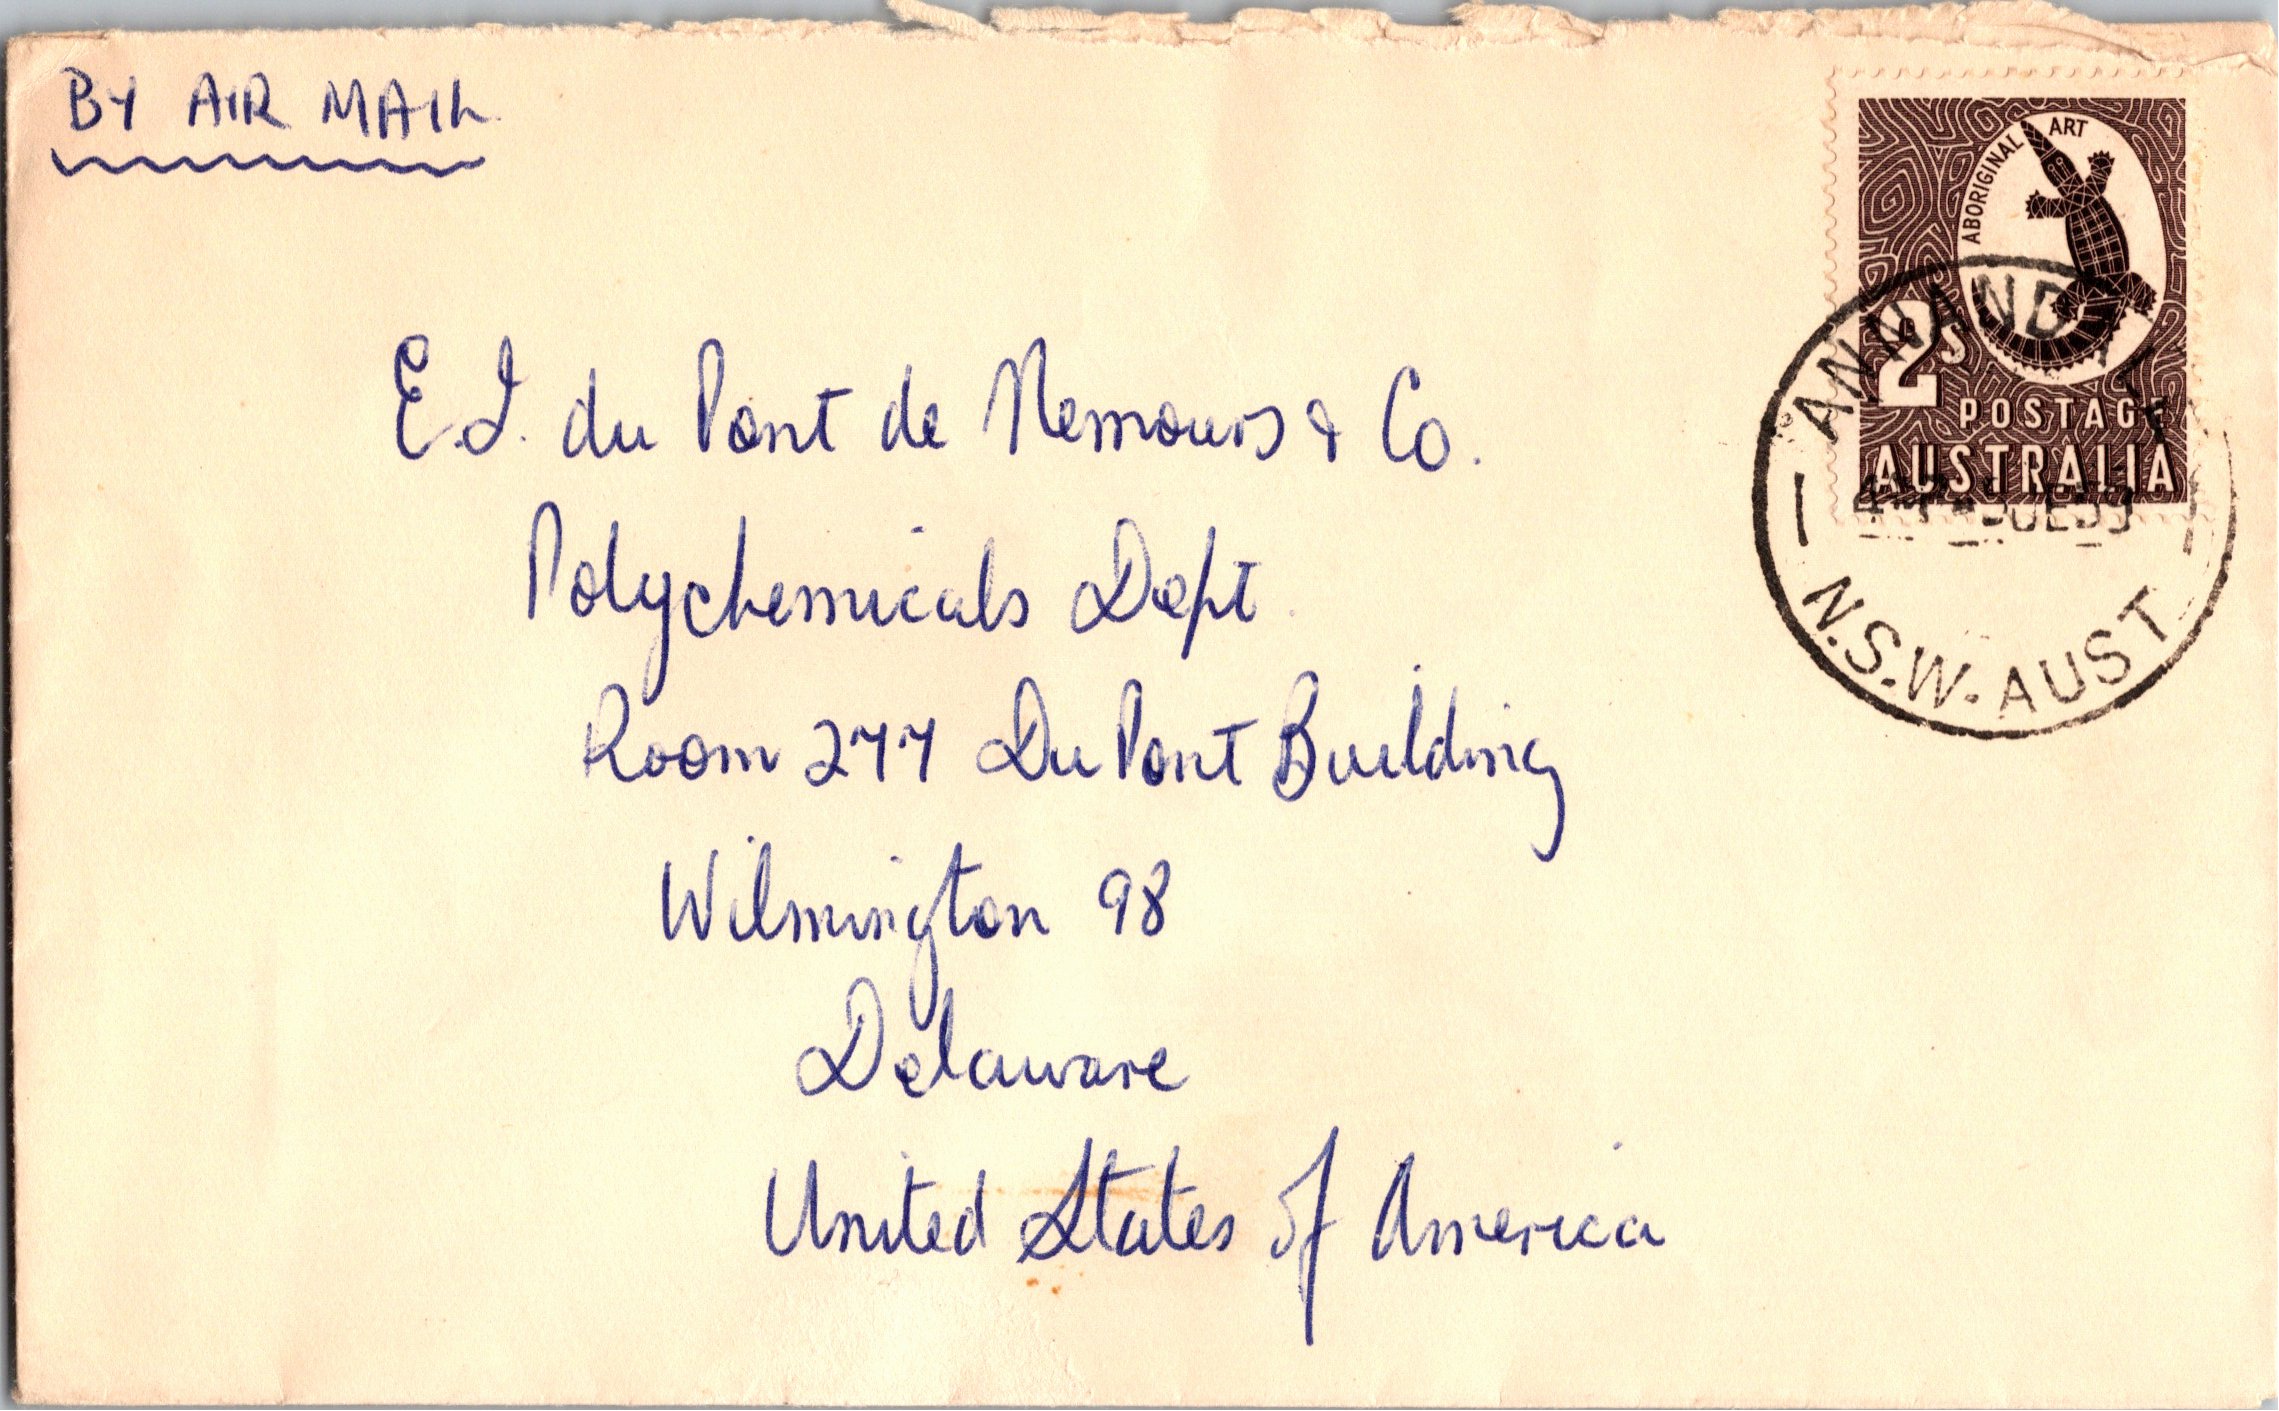 BY AIR MAIL
ABORIGINAL ART
2s
POSTAGE
AUSTRALIA
ANNANDALE
N.S.W. AUST
E.I. du Pont de Nemours & Co.
Polychemicals Dept
Room 277 Du Pont Building
Wilmington 98
Delaware
United States of America